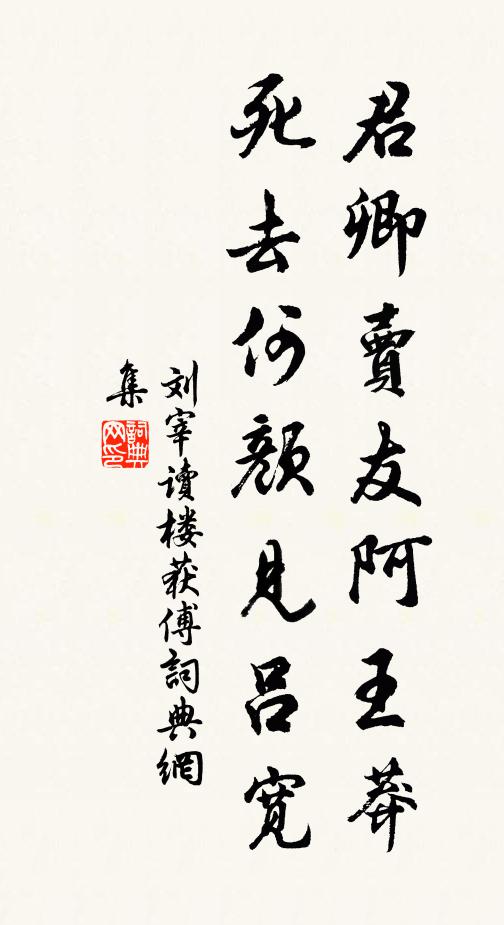 君卿賣友阿王莽
死去何顏見呂寬
刘宰讀楼获傅詞典網
集
詞典网印